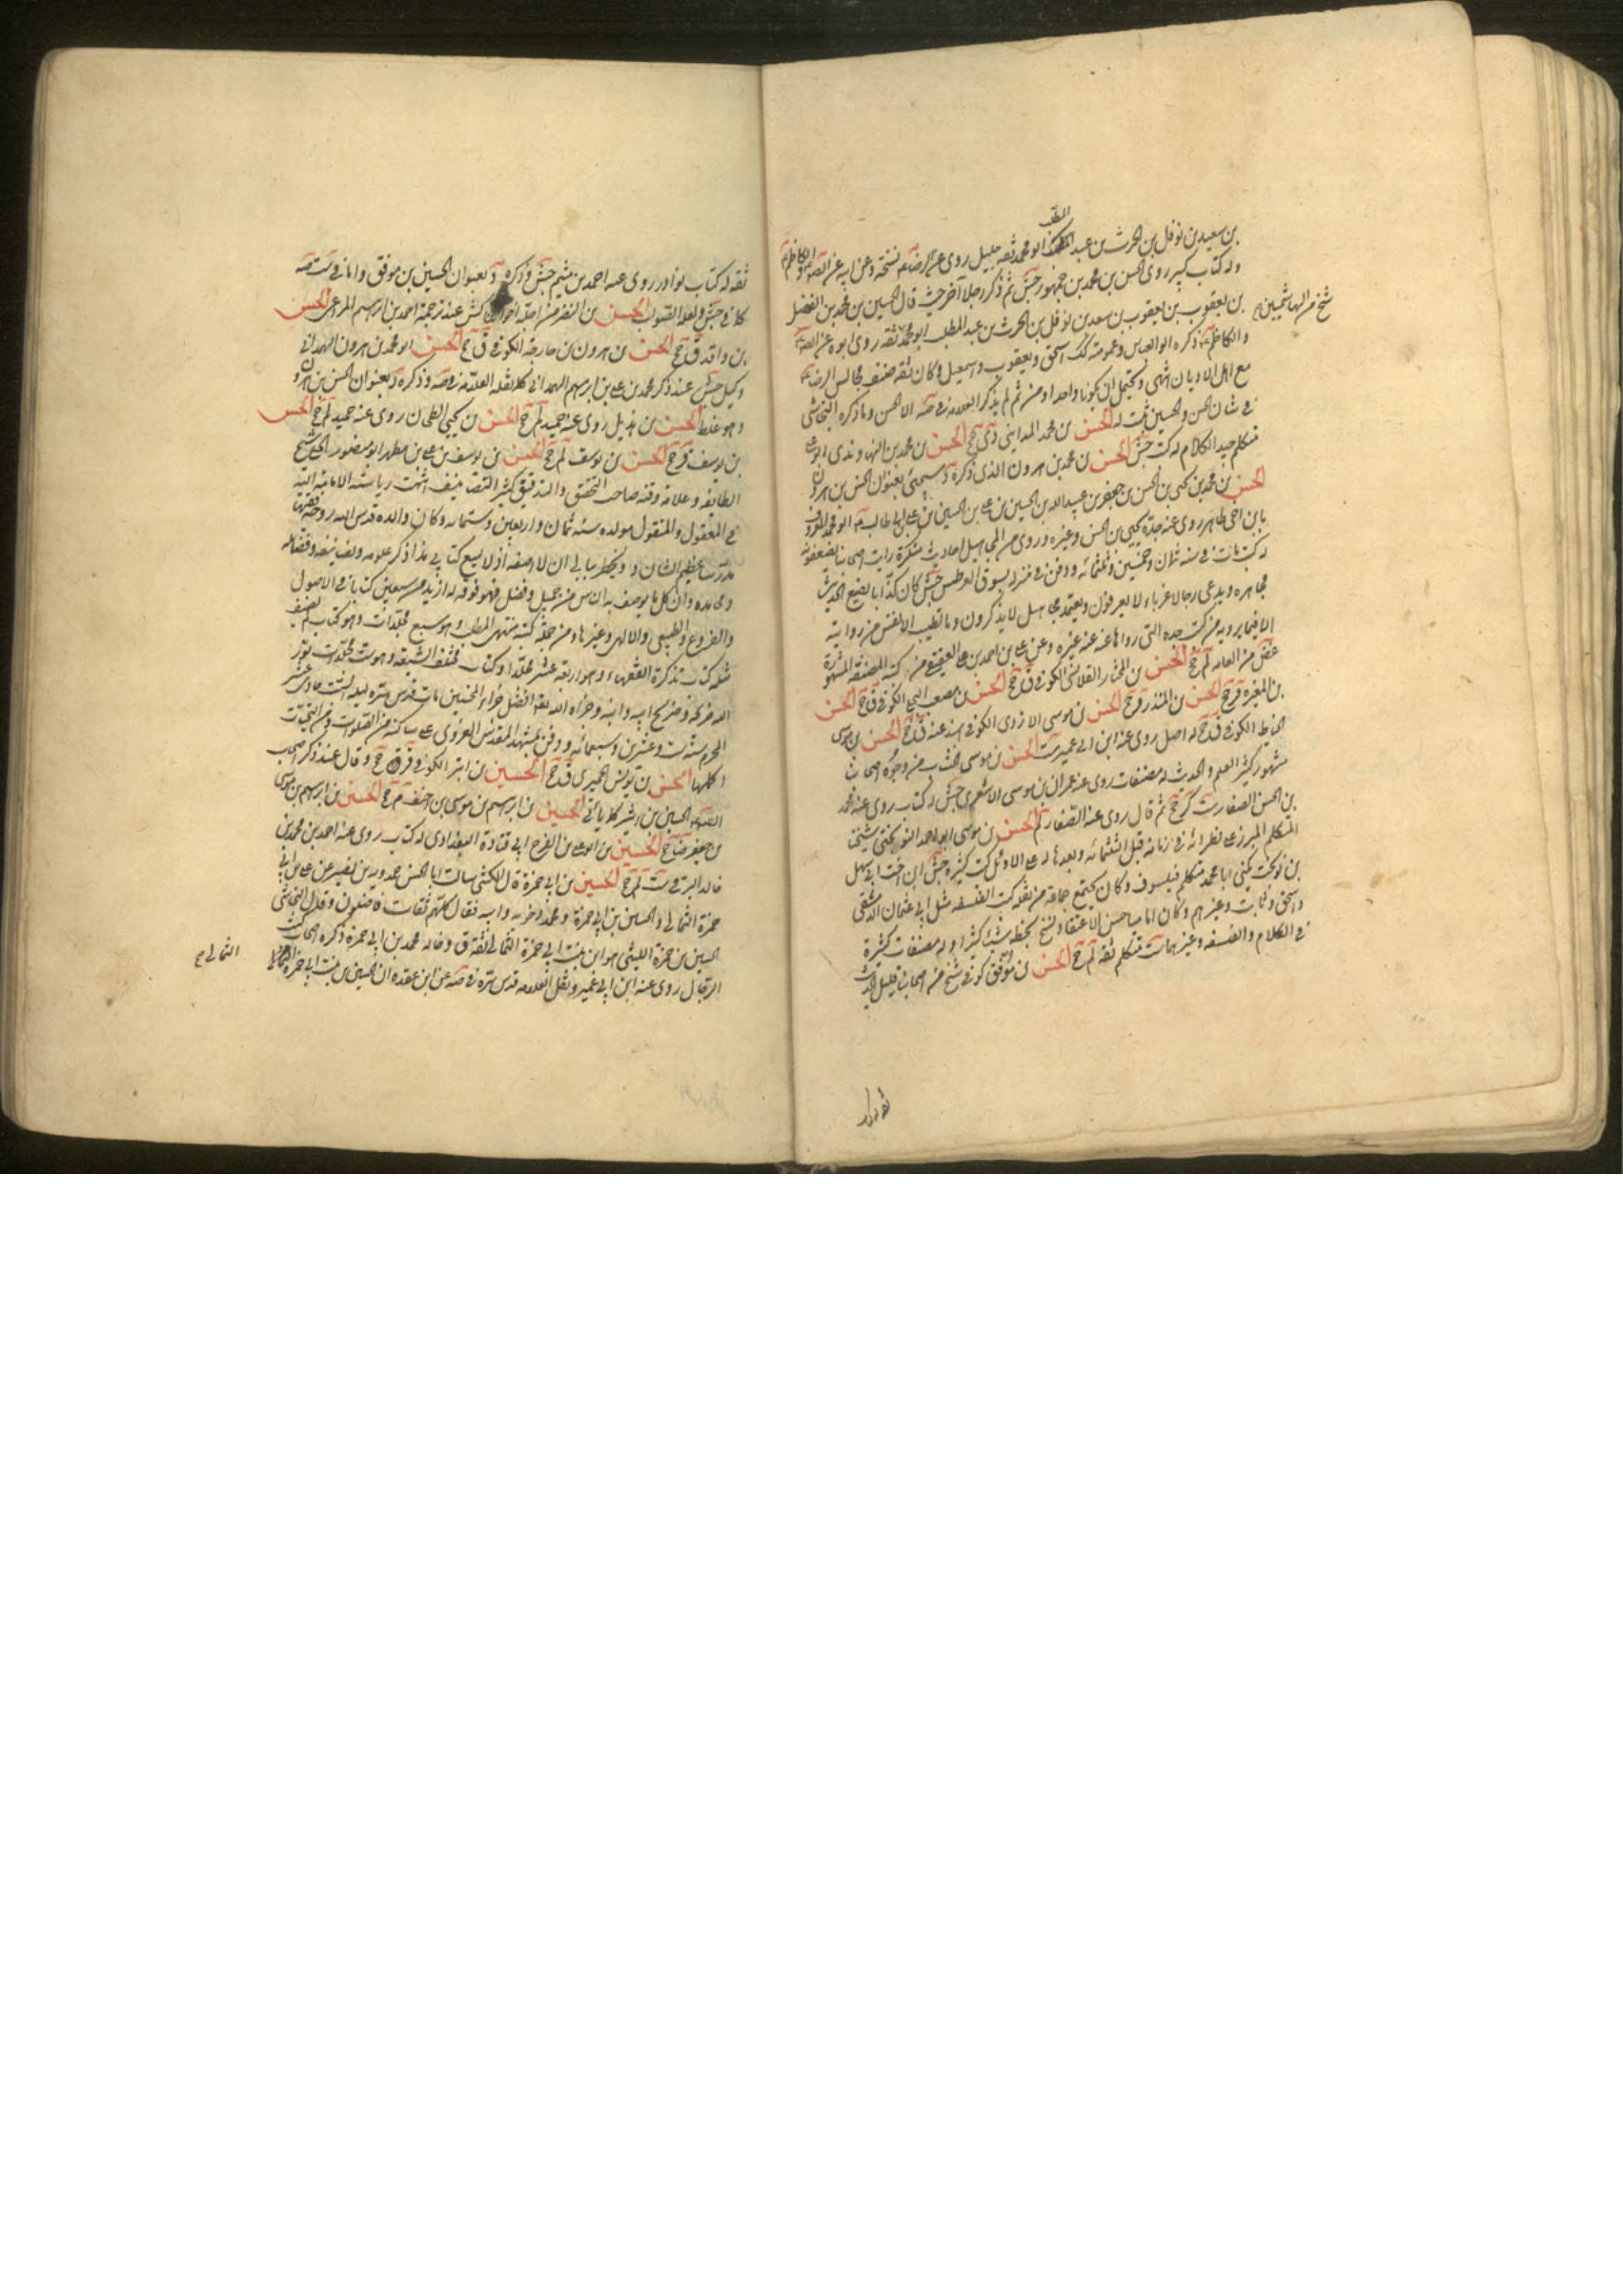 المطلب
بن سعيد بن نوفل بن الحرث بن عبد ابو محمد ثقه جليل روى عن الرضا نسخة وعن ابيه عن
وله كتاب كبير روى الحسن بن محمد بن جمهور جش ثم ذكر رجلا آخر حيث قال الحسين بن محمد بن الفضل
شيخ من الهاشميين
بن يعقوب بن يعقوب بن سعد بن نوفل بن الحرث بن عبد المطلب ابو محمد ثقه روى ابوه عن
والكاظم ذكره ابو العباس وعمومته كك اسحق ويعقوب واسمعيل وكان ثقه صنف مجالس الرضا
مع اهل الاديان انتهى ويحتمل ان يكونا واحدا ومن ثم لم يذكر العلامه في صه الا الحسن وما ذكره النجاشى
في شان الحسن والحسين ثبت له الحسن بن محمد المدايني دى جخ الحسن بن محمد بن النهاوندى ابو على
متكلم جيد الكلام له كتب جش الحسن بن محمد بن هرون الذى ذكره د سيجئى بعنوان الحسن بن هرون
الحسن بن محمد بن يحيى بن الحسن بن جعفر بن عبيد الله بن الحسين بن على بن الحسين بن على بن ابي طالب ابو محمد المعروف
بابن اخى طاهر روى عن جده يحيى بن الحسن وغيره وروى عن المجاهيل احاديث منكرة رايت اصحابنا يضعفونه
له كتب مات في سنه ثمان وخمسين وثلثمائه ودفن في منزله بسوق العطش جش كان كذابا يضع الحديث
مجاهره ويدعى رجالا غرباء لا يعرفون ويعتمد مجاهيل لا يذكرون وما تطيب الانفس من روايته
الا فيما يرويه من كتب جده التى رواها عنه غيره وعن على بن احمد بن على العقيقى من كتبه المصنفه المشهورة
غض من العامه لم جخ الحسن بن المختار القلانسى الكوفي ق جخ الحسن بن مصعب البجلي الكوفي ق جخ الحسن
بن المغيره قر جخ الحسن بن المنذر قر جخ الحسن بن موسى الازدى الكوفي اسند عنه ق جخ الحسن بن موسى
الحناط الكوفي ق جخ له اصل روى عنه ابن ابى عمير ست الحسن بن موسى الخشاب من وجوه اصحابنا
مشهور كثير العلم والحديث له مصنفات روى عنه عمران بن موسى الاشعرى جش له كتاب روى عنه محمد
بن الحسن الصفار ست كر جخ ثم قال روى عنه الصفار لم الحسن بن موسى ابو محمد النوبختى شيخنا
المتكلم المبرز على نظرائه في زمانه قبل الثلثمائه وبعدها له على الاوائل كتب كثيرة جش ابن اخت ابى سهل
بن نوبخت يكنى ابا محمد متكلم فيلسوف وكان يجتمع جماعه من نقله كتب الفلسفه مثل ابى عثمان الدمشقى
واسحق وثابت وغيرهم وكان اماميا حسن الاعتقاد نسخ بخطه شيئا كثيرا وله مصنفات كثيرة
في الكلام والفلسفه وغيرهما ست متكلم ثقه لم جخ الحسن بن موفق كوفي شيخ من اصحابنا قليل الحديث
ثقه له كتاب
ثقه له كتاب نوادر روى عنه احمد بن ميثم جش وذكره د بعنوان الحسين بن موفق واما في ست صه
كما في جش ولعله الصواب الحسن بن النضر من اجلة اخواننا كش عند ترجمة احمد بن ابرهيم المراغى الحسن
بن واقد ق جخ الحسن بن هرون بن خارجه الكوفي ق جخ الحسن ابو محمد بن هرون الهمداني
وكيل جش عند ذكر محمد بن على بن ابرهيم الهمداني كما نقله العلامه في صه وذكره د بعنوان الحسن بن محمد بن هرون
وهو غلط الحسن بن هذيل روى عنه حميد لم جخ الحسن بن يحيى الطحان روى عنه حميد لم جخ الحسن
بن يوسف قر جخ الحسن بن يوسف لم جخ الحسن بن يوسف بن على بن مطهر ابو منصور الحلى شيخ
الطايفه وعلامة وقته صاحب التحقيق والتدقيق كثير التصانيف انتهت رياسته الاماميه اليه
في المعقول والمنقول مولده سنه ثمان واربعين وستمائه وكان والده قدس الله روحه فقيها
مدرسا عظيم الشان د ويخطر ببالى ان لا اصفه اذ لا يسع كتابى هذا ذكر علومه وتصانيفه وفضائله
ومحامده وان كل ما يوصف به الناس من جميل وفضل فهو فوقه له ازيد من سبعين كتابا في الاصول
والفروع والطبيعى والالهى وغيرها ومن جملة كتبه منتهى المطلب وهو سبع مجلدات وهو كتاب لم يصنف
مثله كتاب تذكرة الفقهاء وهو اربعة عشر مجلدا وكتاب مختلف الشيعه وهو ست مجلدات نور
الله مرقده وضريح ابيه وابنه وجزاه الله تعالى افضل جزاء المحسنين مات قدس سره ليله السبت حادى عشر
المحرم سنه ست وعشرين وسبعمائه ودفن بمشهد المقدس الغروى على ساكنه من الصلوات ومن التحيات
اكملها الحسن بن يونس الحميرى ق جخ الحسين بن ابتر الكوفي قر ق جخ وقال عند ذكر اصحاب
الصادق الحسين بن اشير كما ياتى الحسين بن ابرهيم بن موسى بن احنف م جخ الحسين بن ابرهيم بن موسى
بن جعفر ضا جخ الحسين بن ابو على بن الفرج ابى قتادة البغدادى له كتاب روى عنه احمد بن محمد بن
خالد البرقى ست لم جخ الحسين بن ابى حمزة قال الكشى سالت ابا الحسن حمدويه بن نصير عن على بن ابى
حمزة الثمالى والحسين بن ابى حمزة ومحمد اخويه وابيه فقال كلهم ثقات فاضلون وقال النجاشى
الحسين بن حمزة الليثى هو ابن بنت ابى حمزة الثمالى ثقه ق وخاله محمد بن ابى حمزة ذكره اصحاب كتب
الرجال روى عنه ابن ابى عمير ونقل العلامه قدس سره في صه عن ابن عقده ان الحسين بن بنت ابى حمزة
الثمالى صح